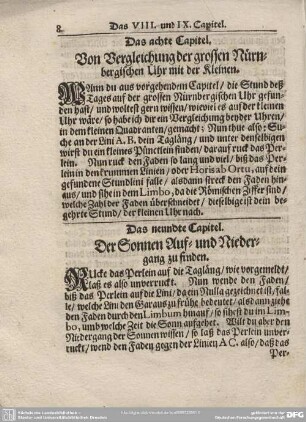 8 Das VIII. und IX. Capitel.
Das achte Capitel.
Von Vergleichung der grossen Nürn-
bergischen Uhr mit der Kleinen.
WAnn du aus vorgehendem Capitel / die Stund deß
Tages auf der grossen Nürnbergischen Uhr gefun
den hast / und woltest gern wissen / wieviel es auf der kleinen
Uhr wäre / so habe ich dir ein Vergleichung beyder Uhren /
in dem kleinen Quadranten / gemacht: Nun thue also: Su-
che an der Lini A. B. dein Taglång / und unter denselbigen
wirst du ein kleines Pünctlein finden / darauf ruck das Per-
lein. Nun ruck den Faden so lang und viel / biß das Perle-
in in den krummen Linien / oder Horis ab Ortu, auf dein
gefundene Stundlini falle / alsdann streck den Faden hin-
aus / und sihe in dem Limbo, da die Römischen Ziffer sind /
welche Zahl der Faden überschneidet / dieselbige ist dein be-
gehrte Stund / der kleinen Uhr nach.
Das neundte Capitel.
Der Sonnen Auf- und Nieder-
gang zu finden.
RUcke das Perlein auf die Taglång / wie vorgemeldt /
laß es also unverruckt. Nun wende den Faden /
biß das Perlein auf die Lini / da ein Nulla gezeichnet ist / fal-
le / welche Lini den Garaus zu frühe bedeutet / alsdann zieht
den Faden durch den Limbum hinauf / so sihest du im Lim-
bo, und welche Zeit die Sonn aufgehet. Wilt du aber den
Nidergang der Sonnen wissen / so laß das Perlein unver-
ruckt / wend den Faden gegen der Linien A C. also / daß das
Per-